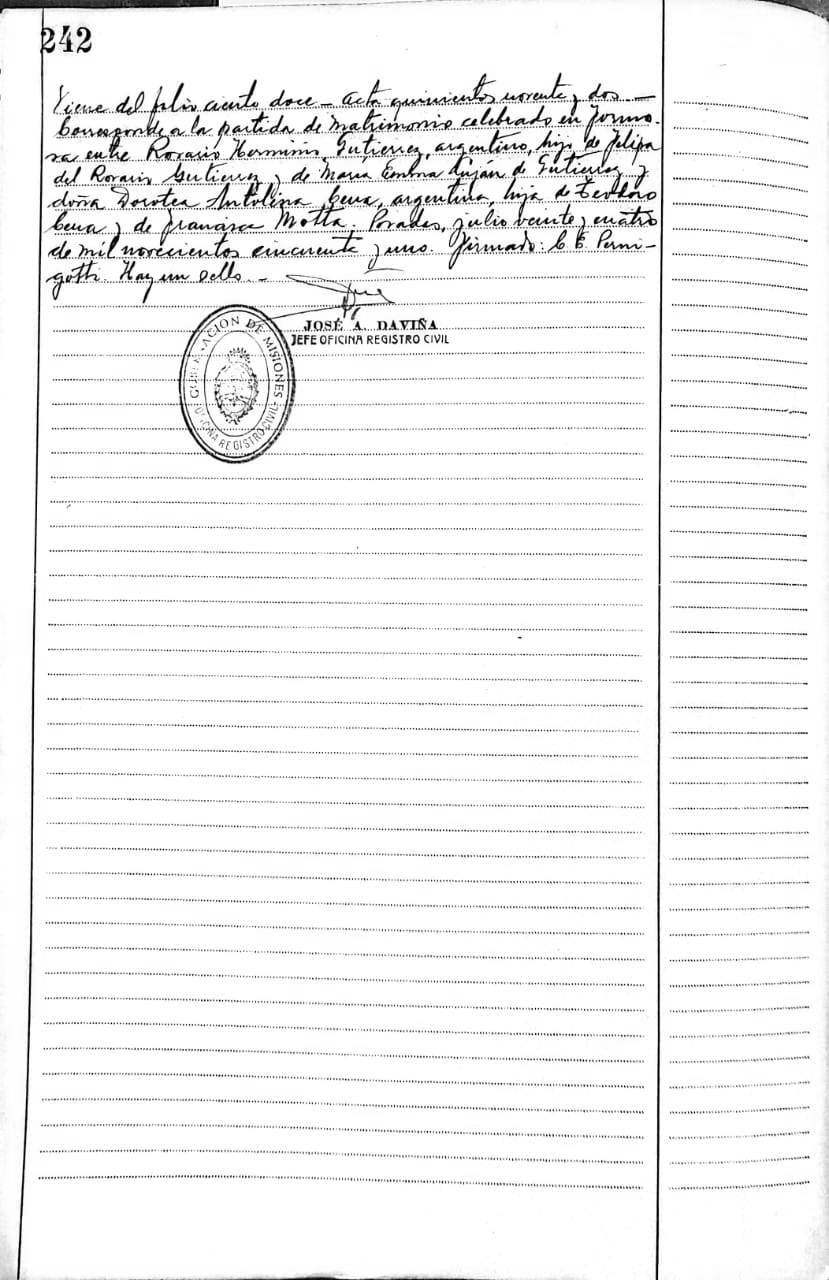 242
Viene del folio ciento doce - Acta quinientos noventa y dos. -
Corresponde a la partida de matrimonio celebrado en Formo-
sa entre Rosario Herminio Gutierrez, argentino, hijo de Felipa
del Rosario Gutierrez y de María Luján de Gutierrez y
doña Dorotea Antolina Cena, argentina, hija de Teodoro
Cena y de Francisca Motta. Posadas, julio veinte y cuatro
de mil novecientos cincuenta y uno. Firmado: C E Perni-
gotti. Hay un sello. -
JOSÉ A. DAVIÑA
JEFE OFICINA REGISTRO CIVIL
GOBERNACION DE MISIONES
OFICINA REGISTRO CIVIL